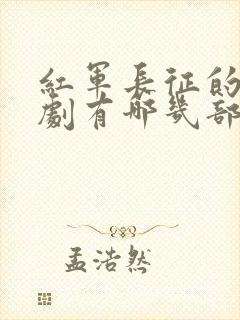 紅軍長征的
劇有哪幾部
孟浩然